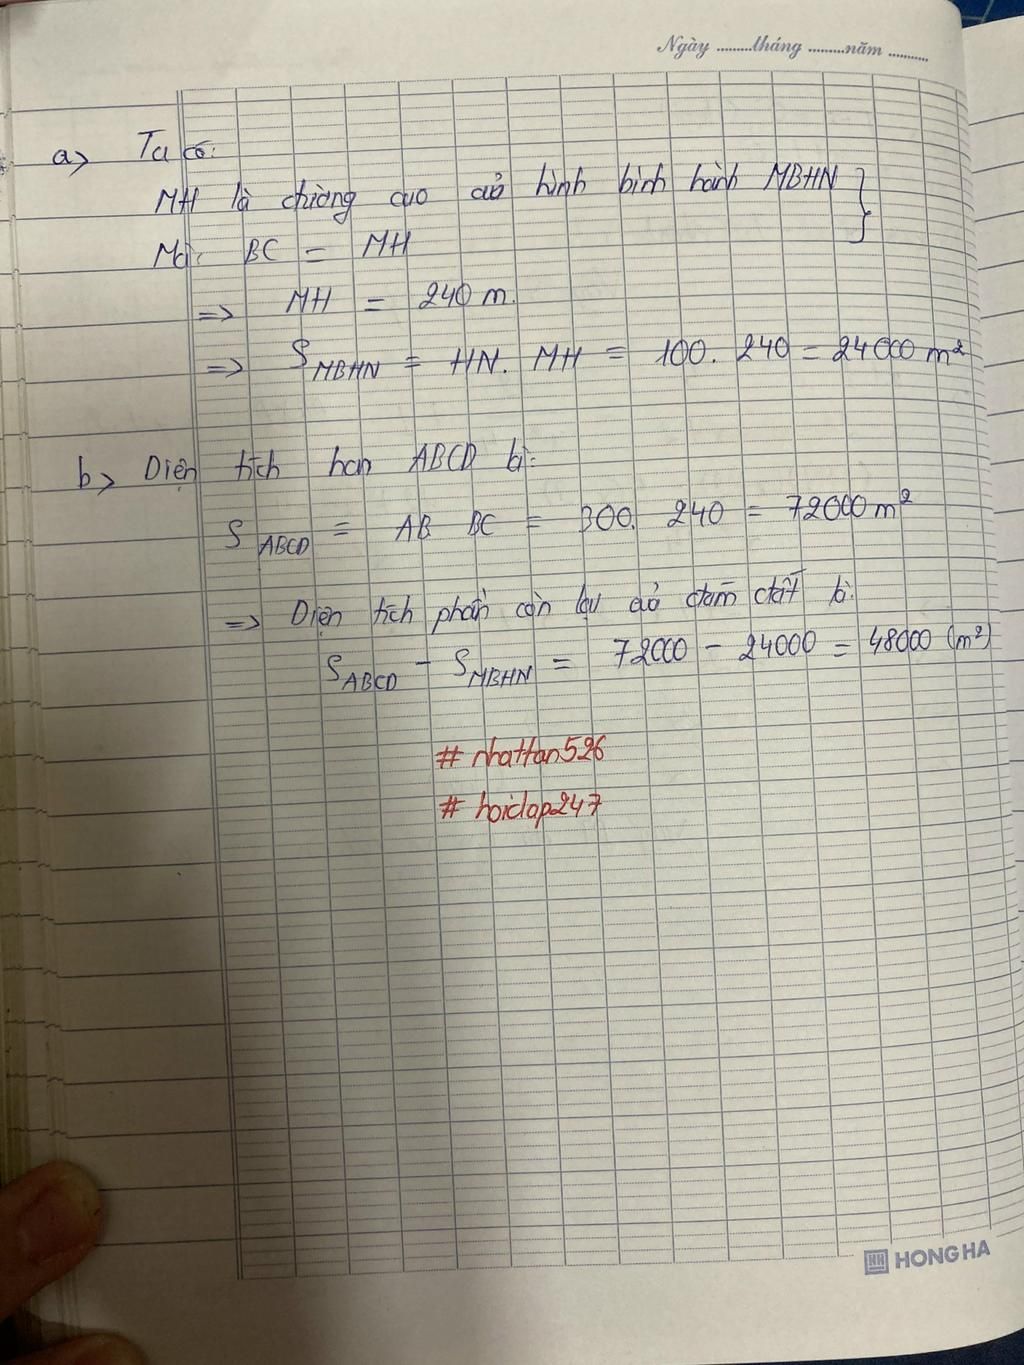 Ngày ........tháng ........năm ........
a> Ta có:
MH là chiờng cao củ hình bình hành MBHN }
Mà: BC = MH
=> MH = 240 m.
=> S MBHN = HN. MH = 100. 240 = 24000 m²
b> Diện tích hcn ABCD là:
S ABCD = AB BC = 300. 240 = 72000 m²
=> Diện tích phần còn lại củ đám đất là:
S ABCD - S MBHN = 72000 - 24000 = 48000 (m²)
# nhattan526
# hoidap247
HH HONG HA